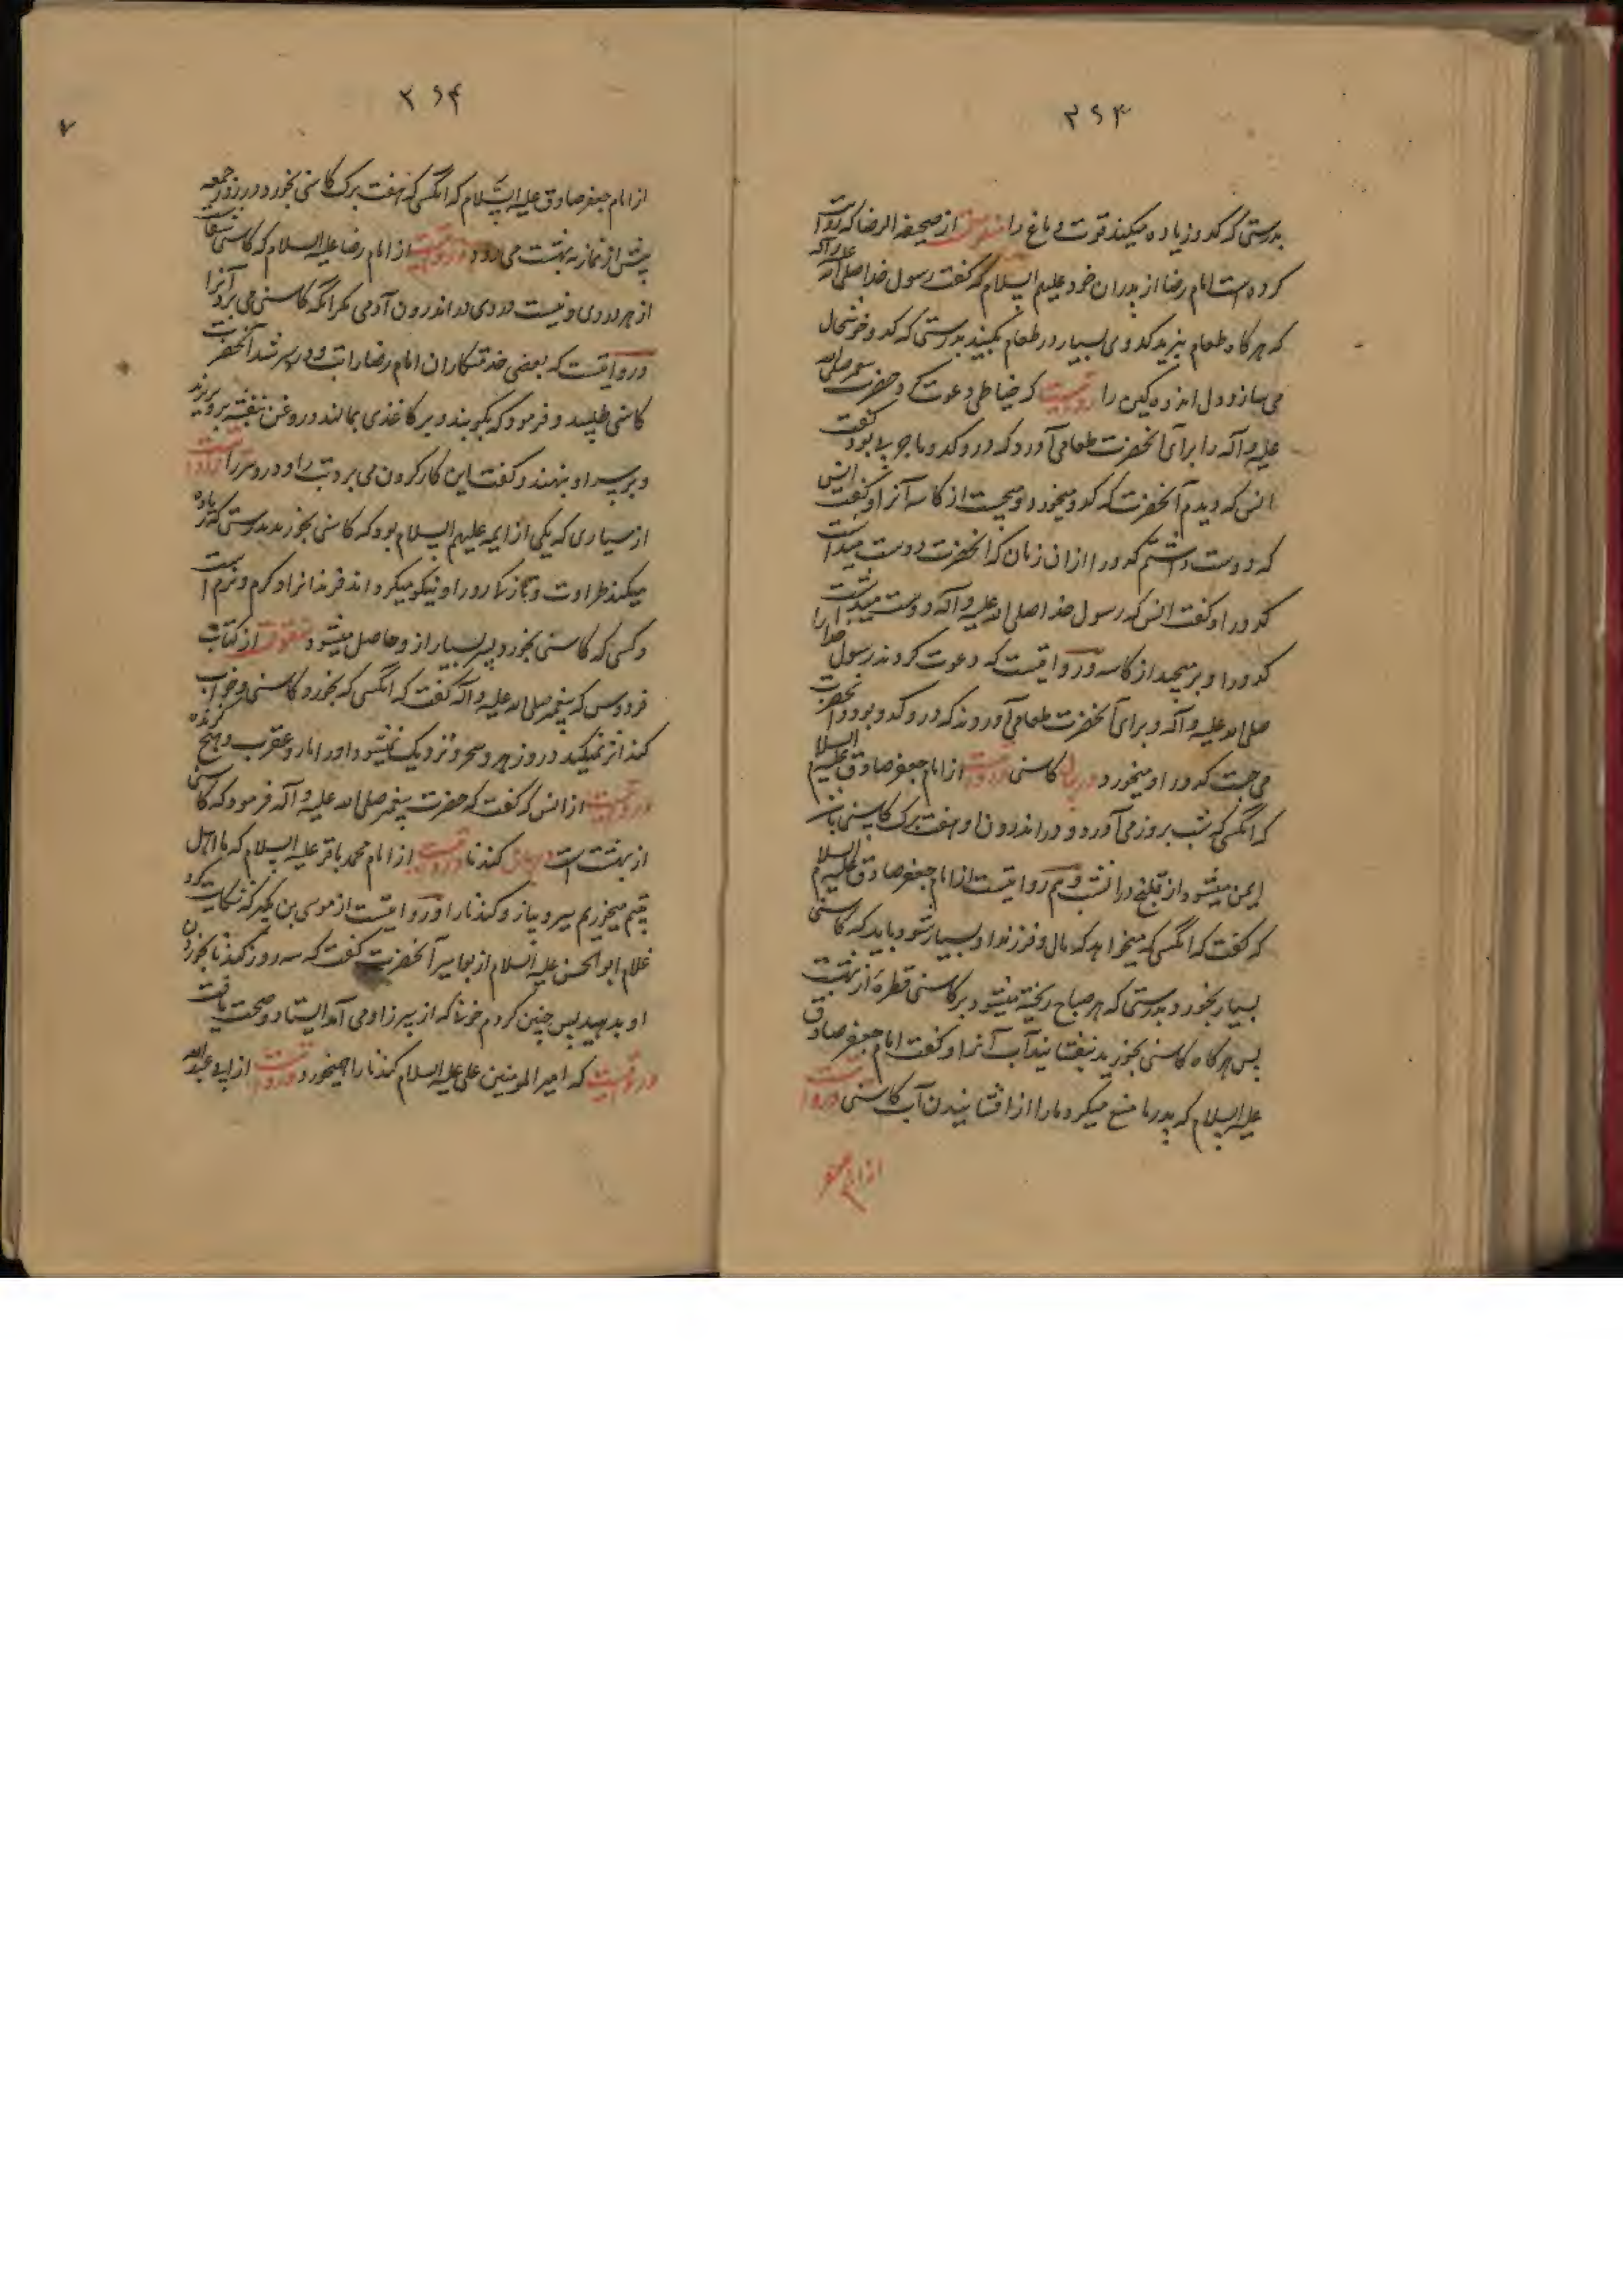 ۳۶۳
بدرستی که کدو زیاده میکند قوت دماغ را منقولست از صحیفه الرضا که روایت
کرده است امام رضا از پدران خود علیهم السلام که گفت رسول خدا صلی الله علیه وآله
که هر گاه طعام بپزید کدوی بسیار در طعام بکنید بدرستی که کدو خوشحال
می سازد دل اندوهگین را روایتست که خیاطی دعوت کرد حضرت پیغمبر صلی الله
علیه وآله را برای آنحضرت طعامی آورد که در و کدو بود گفت
انس که دیدم آنحضرت که کدو میخورد و میجست از کاسه آنرا و گفت انس
که دوست داشتم کدو را از ان زمان که آنحضرت دوست میداشت
کدو را و گفت انس که رسول خدا صلی الله علیه وآله دوست میداشت
کدو را و بر میچید از کاسه و روایتست که دعوت کردند رسول خدا را
صلی الله علیه وآله و برای آنحضرت طعامی آوردند که در و کدو بود و آنحضرت
می جست کدو را و میخورد در بیان کاسنی روایتست از امام جعفر صادق علیه السلام
که آنکسی که شب بروز می آورد و در اندرون او هفت برک کاسنی باشد
ایمن میشود از قولنج در آنشب و هم روایتست از امام جعفر صادق علیه السلام
که گفت که آنکسی که میخواهد که مال و فرزند او بسیار شود باید که کاسنی
بسیار بخورد بدرستی که هر صباح ریخته میشود بر کاسنی قطرهٔ از بهشت
پس هر گاه کاسنی بخورید نیفشانید آب آنرا و گفت امام جعفر صادق
علیه السلام که پدر ما منع میکرد ما را از افشانیدن آب کاسنی و روایتست
از امام جعفر
۳۶۴
از امام جعفر صادق علیه السلام که آنکسی که هفت برک کاسنی بخورد در روز جمعه
پیش از نماز به بهشت می رود و روایتست از امام رضا علیه السلام که کاسنی شفاست
از هر دردی و نیست دردی در اندرون آدمی مگر آنکه کاسنی می برد آنرا
و روایتست که بعضی خدمتکاران امام رضا را تب و درد سر شد آنحضرت
کاسنی طلبید و فرمود که بکوبند و بر کاغذی بمالند و روغن بنفشه برو بریزند
و بر سر او بنهند و گفت این کار کردن می برد تب را و درد سر را روایتست
از سیاری که یکی از ایمه علیهم السلام بود که کاسنی بخورید بدرستی که زیاده
میکند طراوت و تازگی رو را و نیکو میکرداند فرزندانرا و گرم و نرم است
و کسی که کاسنی بخورد پسر بسیار از و حاصل میشود منقولست از کتاب
فردوس که پیغمبر صلی الله علیه وآله گفت که آنکسی که بخورد کاسنی و خواب
کند اثر نمیکند در و زهر و سحر و نزدیک نمیشود او را مار و عقرب و هیچ گزنده
و روایتست از انس که گفت که حضرت پیغمبر صلی الله علیه وآله فرمود که کاسنی
از بهشت است در بیان کندنا روایتست از امام محمد باقر علیه السلام که ما اهل
میخوریم سیر و پیاز و کندنا را و روایتست از موسی بن بکر که شکایت کرد
غلام ابو الحسن علیه السلام از بواسیر آنحضرت گفت که سه روز کندنا بخوردن
او بدهید پس چنین کردم خونی که از سپرز او می آمد ایستاد و صحت یافت
و روایتست که امیر المومنین علی علیه السلام کندنا را میخورد و روایتست از ابی عبد الله